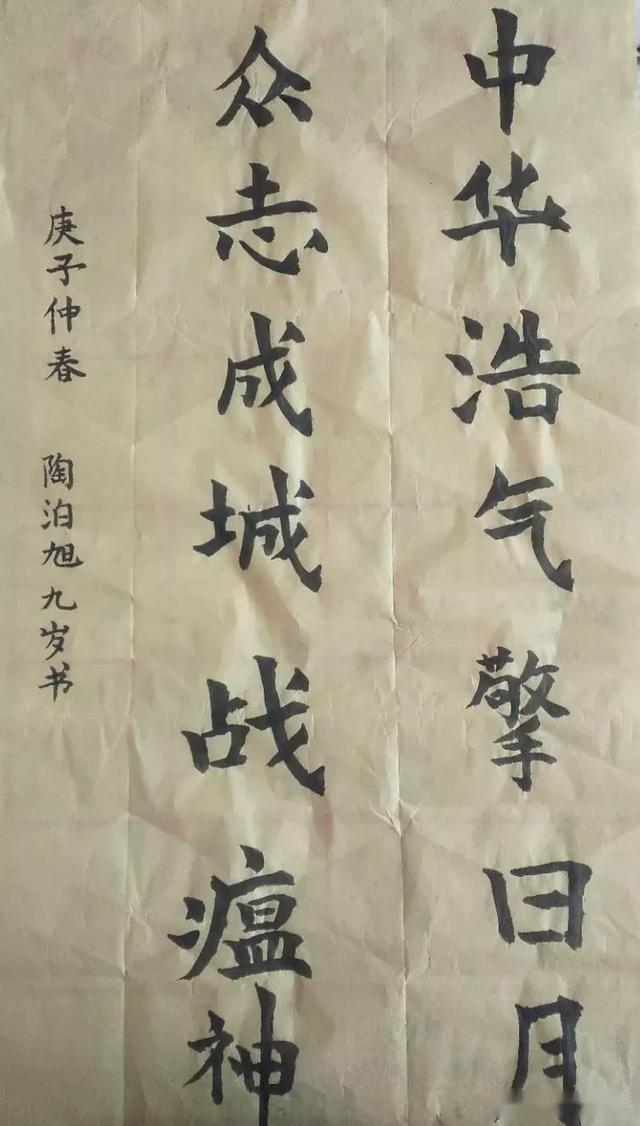 中华浩气擎日月
众志成城战瘟神
庚子仲春 陶泊旭九岁书